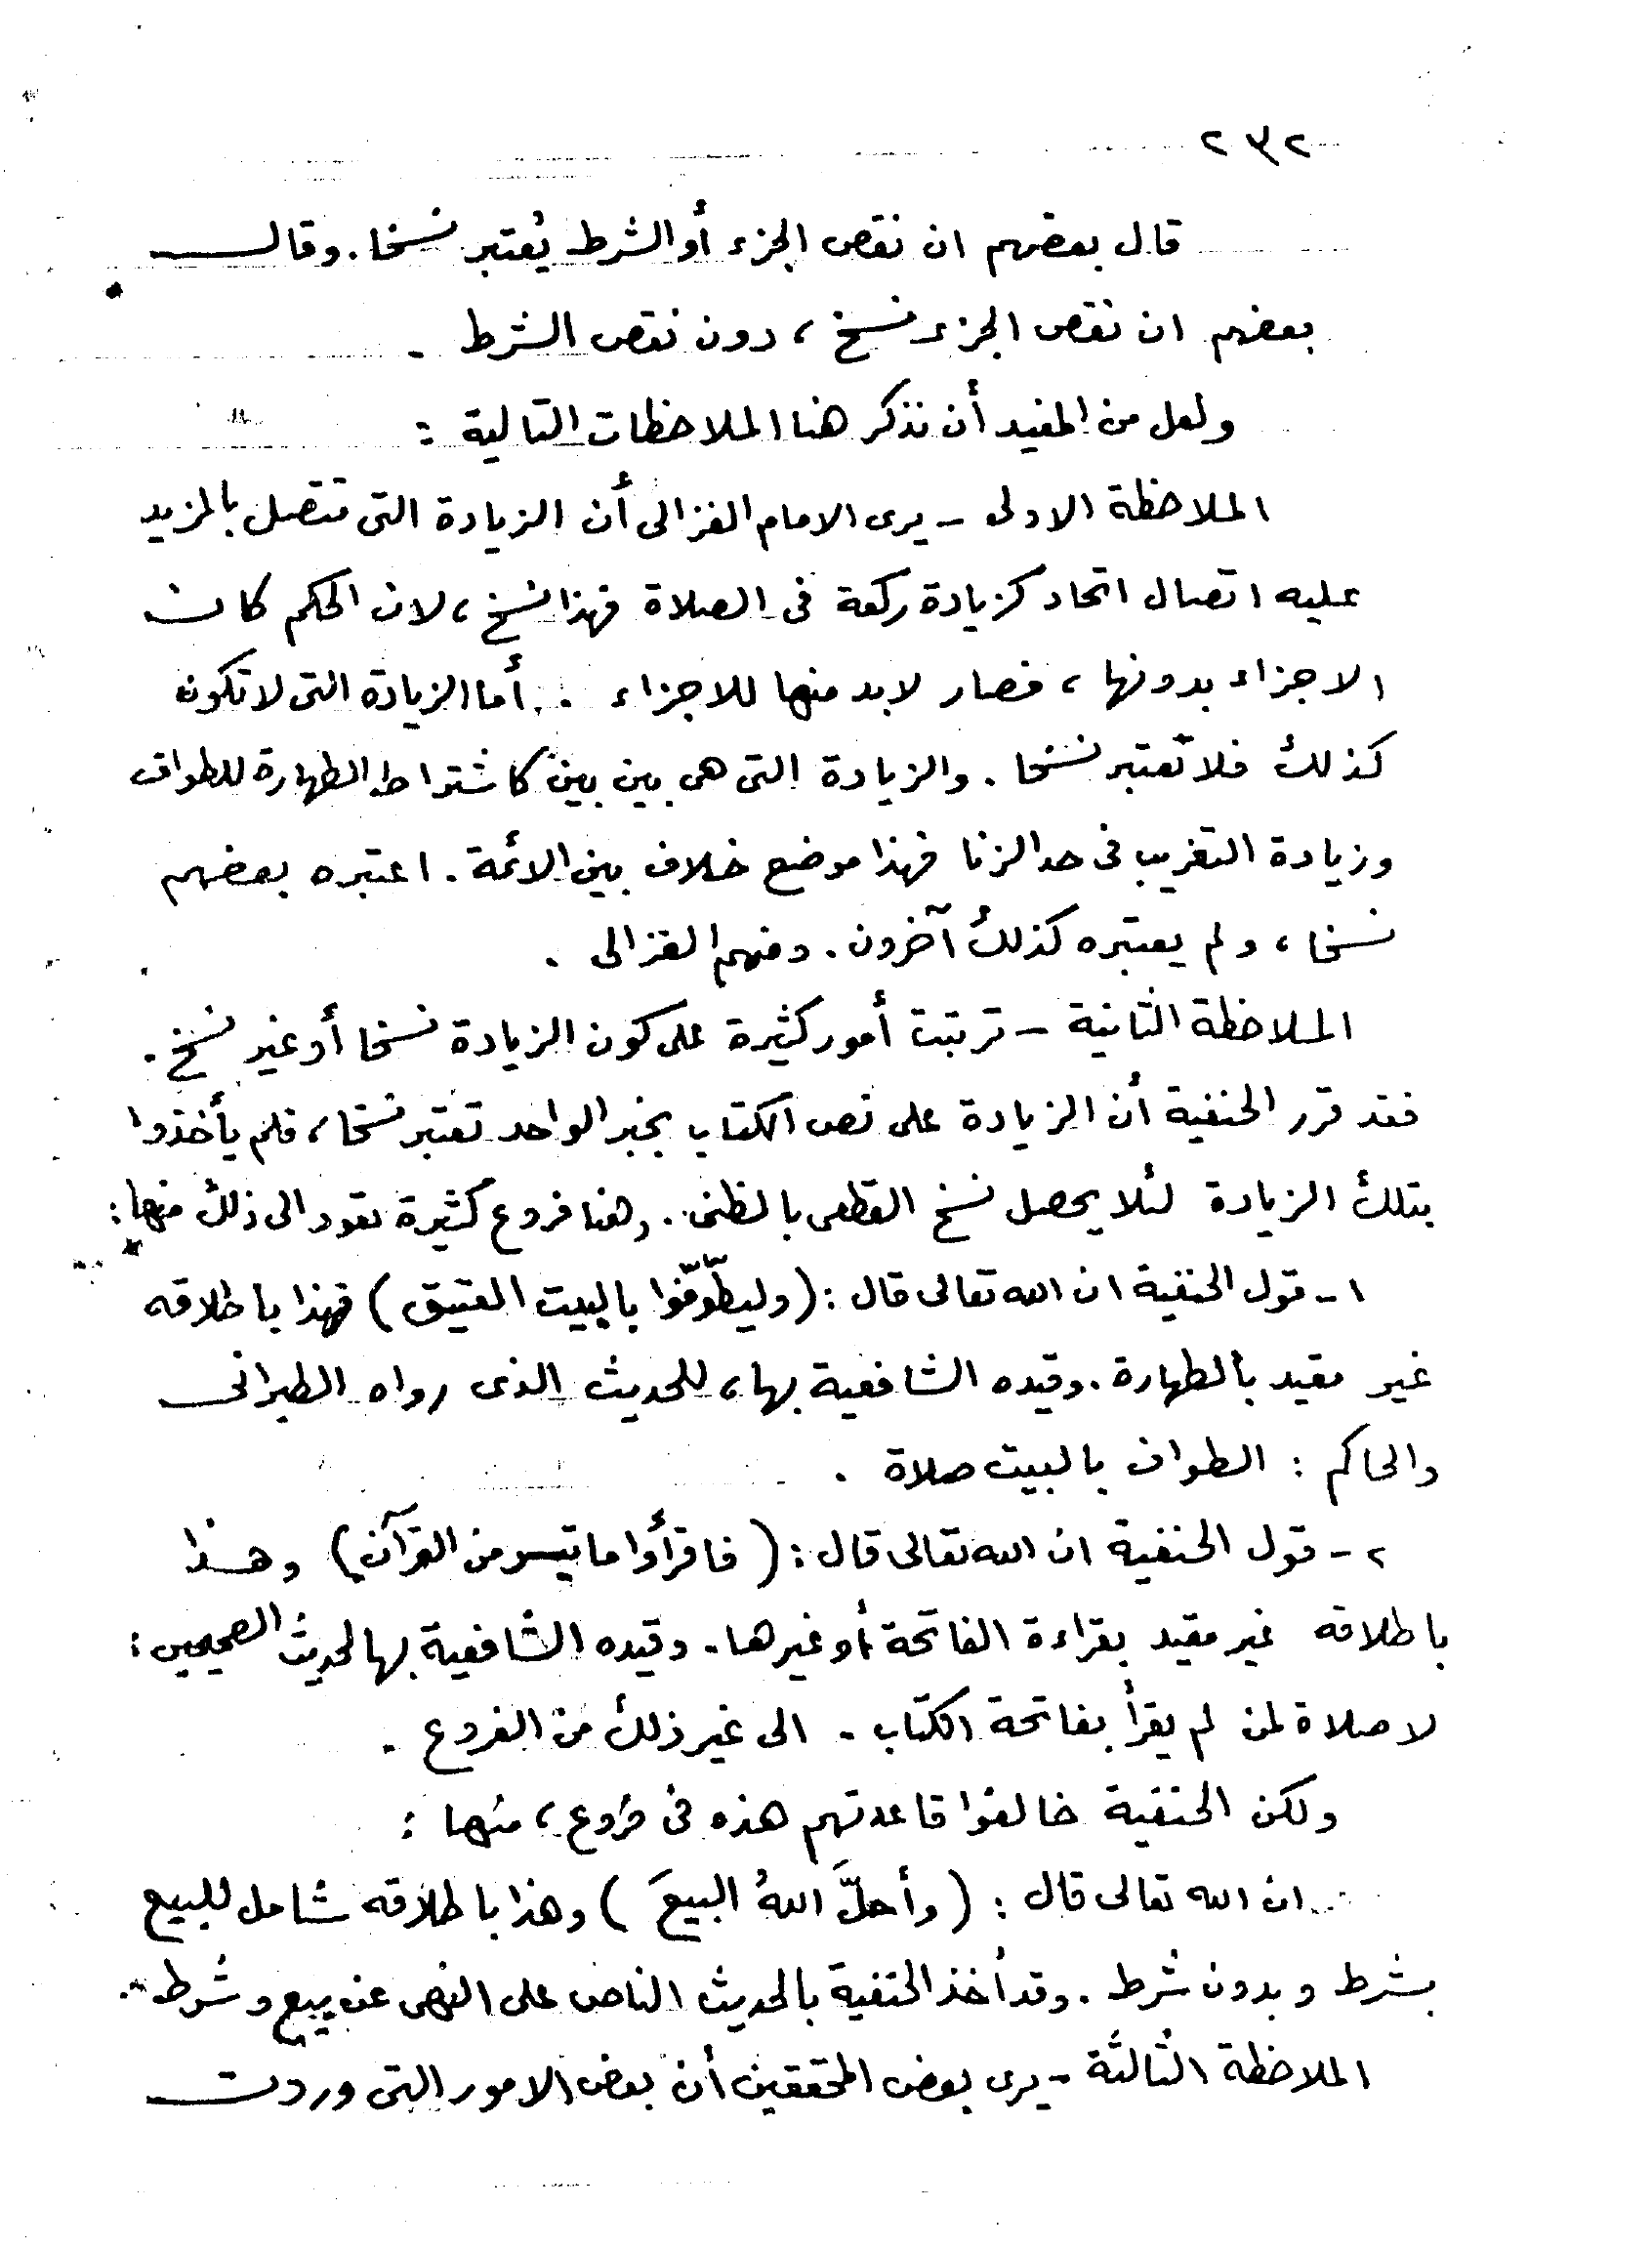 ٢٣٢
قال بعضهم ان نقص الجزء أو الشرط يُعتبر نسخا . وقال
بعضهم ان نقص الجزء نسخ ، دون نقص الشرط .
ولعل من المفيد أن نذكر هنا الملاحظات التالية :
الملاحظة الاولى - يرى الامام الغزالى أن الزيادة التى تتصل بالمزيد
عليه اتصال اتحاد كزيادة ركعة فى الصلاة فهذا نسخ ، لان الحكم كان
الاجزاء بدونها ، فصار لا بد منها للاجزاء . أما الزيادة التى لا تكون
كذلك فلا تعتبر نسخا . والزيادة التى هى بين بين كاشتراط الطهارة للطواف
وزيادة التغريب فى حد الزنا فهذا موضع خلاف بين الائمة . اعتبره بعضهم
نسخا ، ولم يعتبره كذلك آخرون . ومنهم الغزالى .
الملاحظة الثانية - ترتبت أمور كثيرة على كون الزيادة نسخا أو غير نسخ .
فقد قرر الحنفية أن الزيادة على نص الكتاب بخبر الواحد تعتبر نسخا ، فلم يأخذوا
بتلك الزيادة لئلا يحصل نسخ القطعى بالظنى . وهنا فروع كثيرة تعود الى ذلك منها :
١ - قول الحنفية ان الله تعالى قال : ( وليطّوّفوا بالبيت العتيق ) فهذا باطلاقه
غير مقيد بالطهارة . وقيده الشافعية بها ، للحديث الذى رواه الطبرانى
والحاكم : الطواف بالبيت صلاة .
٢ - قول الحنفية ان الله تعالى قال : ( فاقرأوا ما تيسر من القرآن ) وهذا
باطلاقه غير مقيد بقراءة الفاتحة أو غيرها . وقيده الشافعية بها لحديث الصحيحين :
لا صلاة لمن لم يقرأ بفاتحة الكتاب . الى غير ذلك من الفروع .
ولكن الحنفية خالفوا قاعدتهم هذه فى فروع ، منها :
ان الله تعالى قال : ( وأحلَّ اللهُ البيعَ ) وهذا باطلاقه شامل للبيع
بشرط وبدون شرط . وقد أخذ الحنفية بالحديث الناص على النهى عن بيع وشرط .
الملاحظة الثالثة - يرى بعض المحققين أن بعض الامور التى وردت